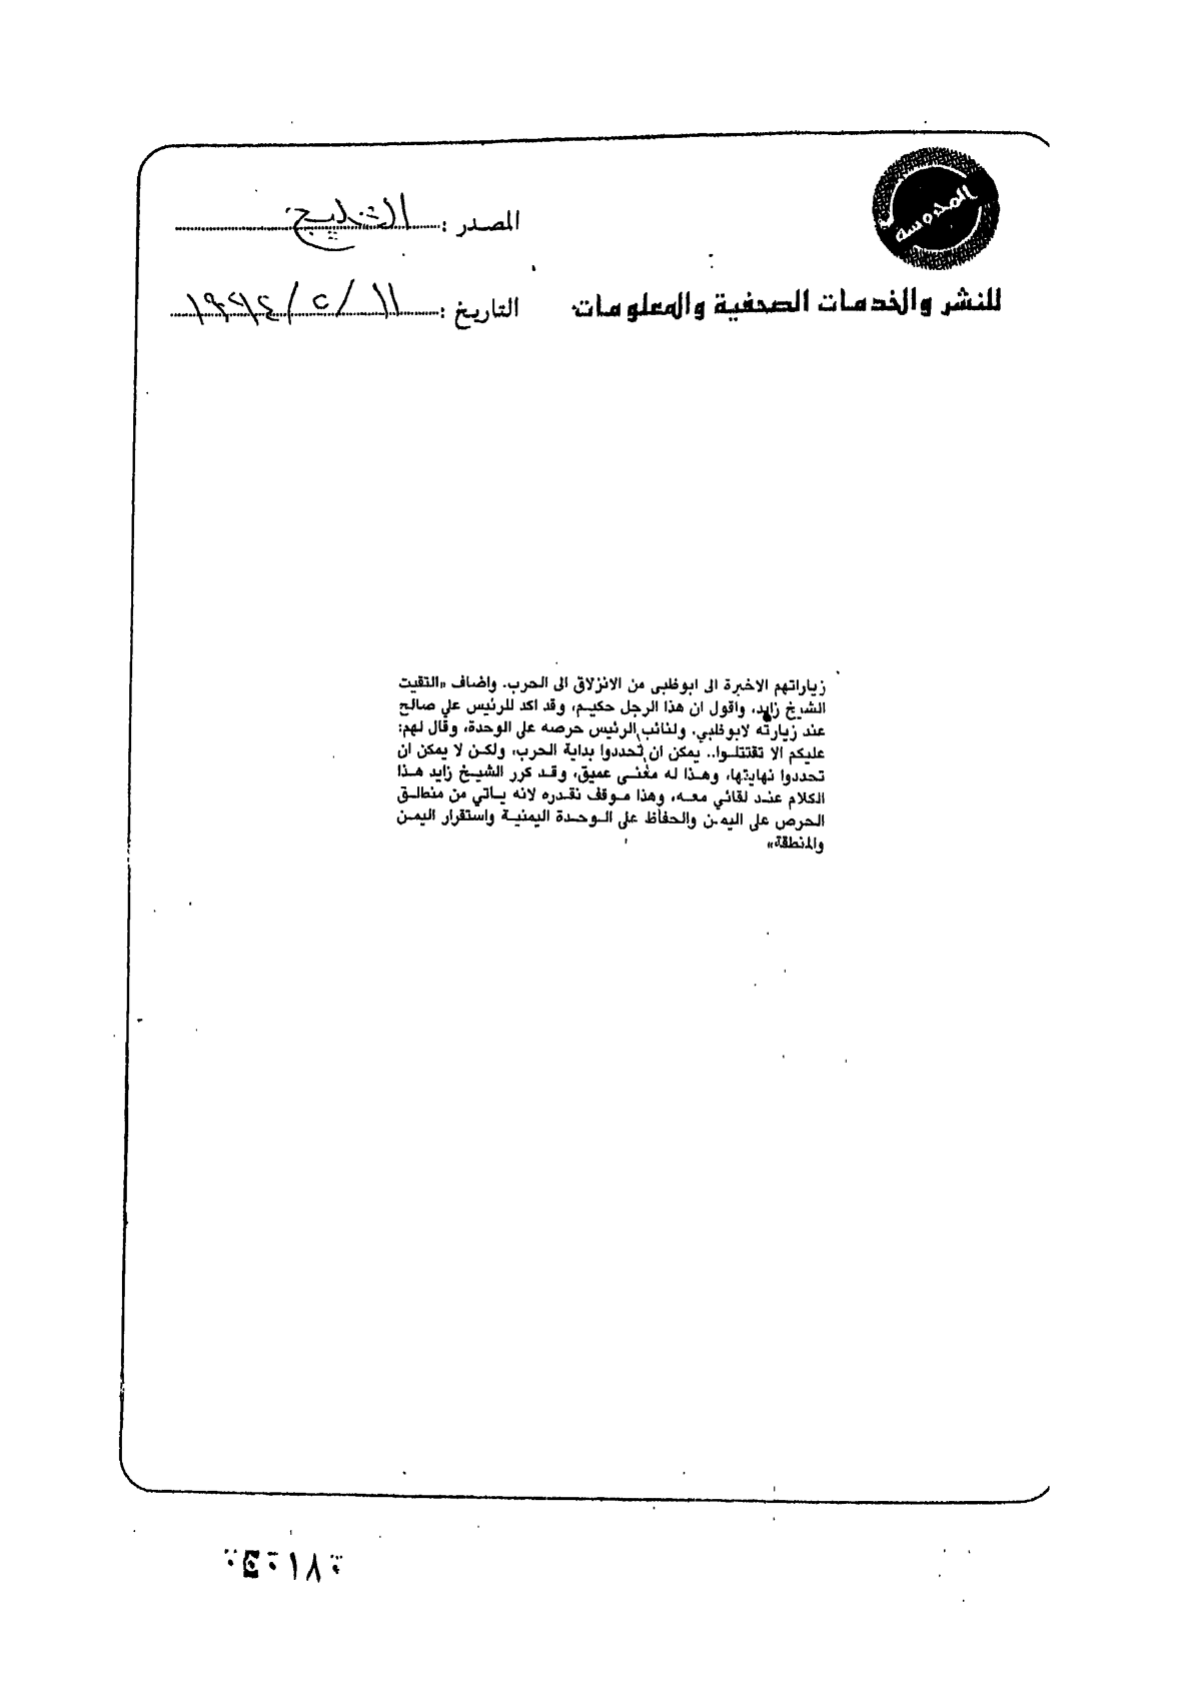 المحروسة
للنشر والخدمات الصحفية والمعلومات
المصدر : الخليج
التاريخ : ١١ / ٥ / ١٩٩٤
زياراتهم الاخيرة الى ابوظبي من الانزلاق الى الحرب. واضاف «التقيت
الشيخ زايد، واقول ان هذا الرجل حكيم، وقد اكد للرئيس علي صالح
عند زيارته لابوظبي. ولنائب الرئيس حرصه على الوحدة، وقال لهم:
عليكم الا تقتتلوا.. يمكن ان تحددوا بداية الحرب، ولكن لا يمكن ان
تحددوا نهايتها، وهذا له معنى عميق، وقد كرر الشيخ زايد هذا
الكلام عند لقائي معه، وهذا موقف نقدره لانه ياتي من منطلق
الحرص على اليمن والحفاظ على الوحدة اليمنية واستقرار اليمن
والمنطقة»